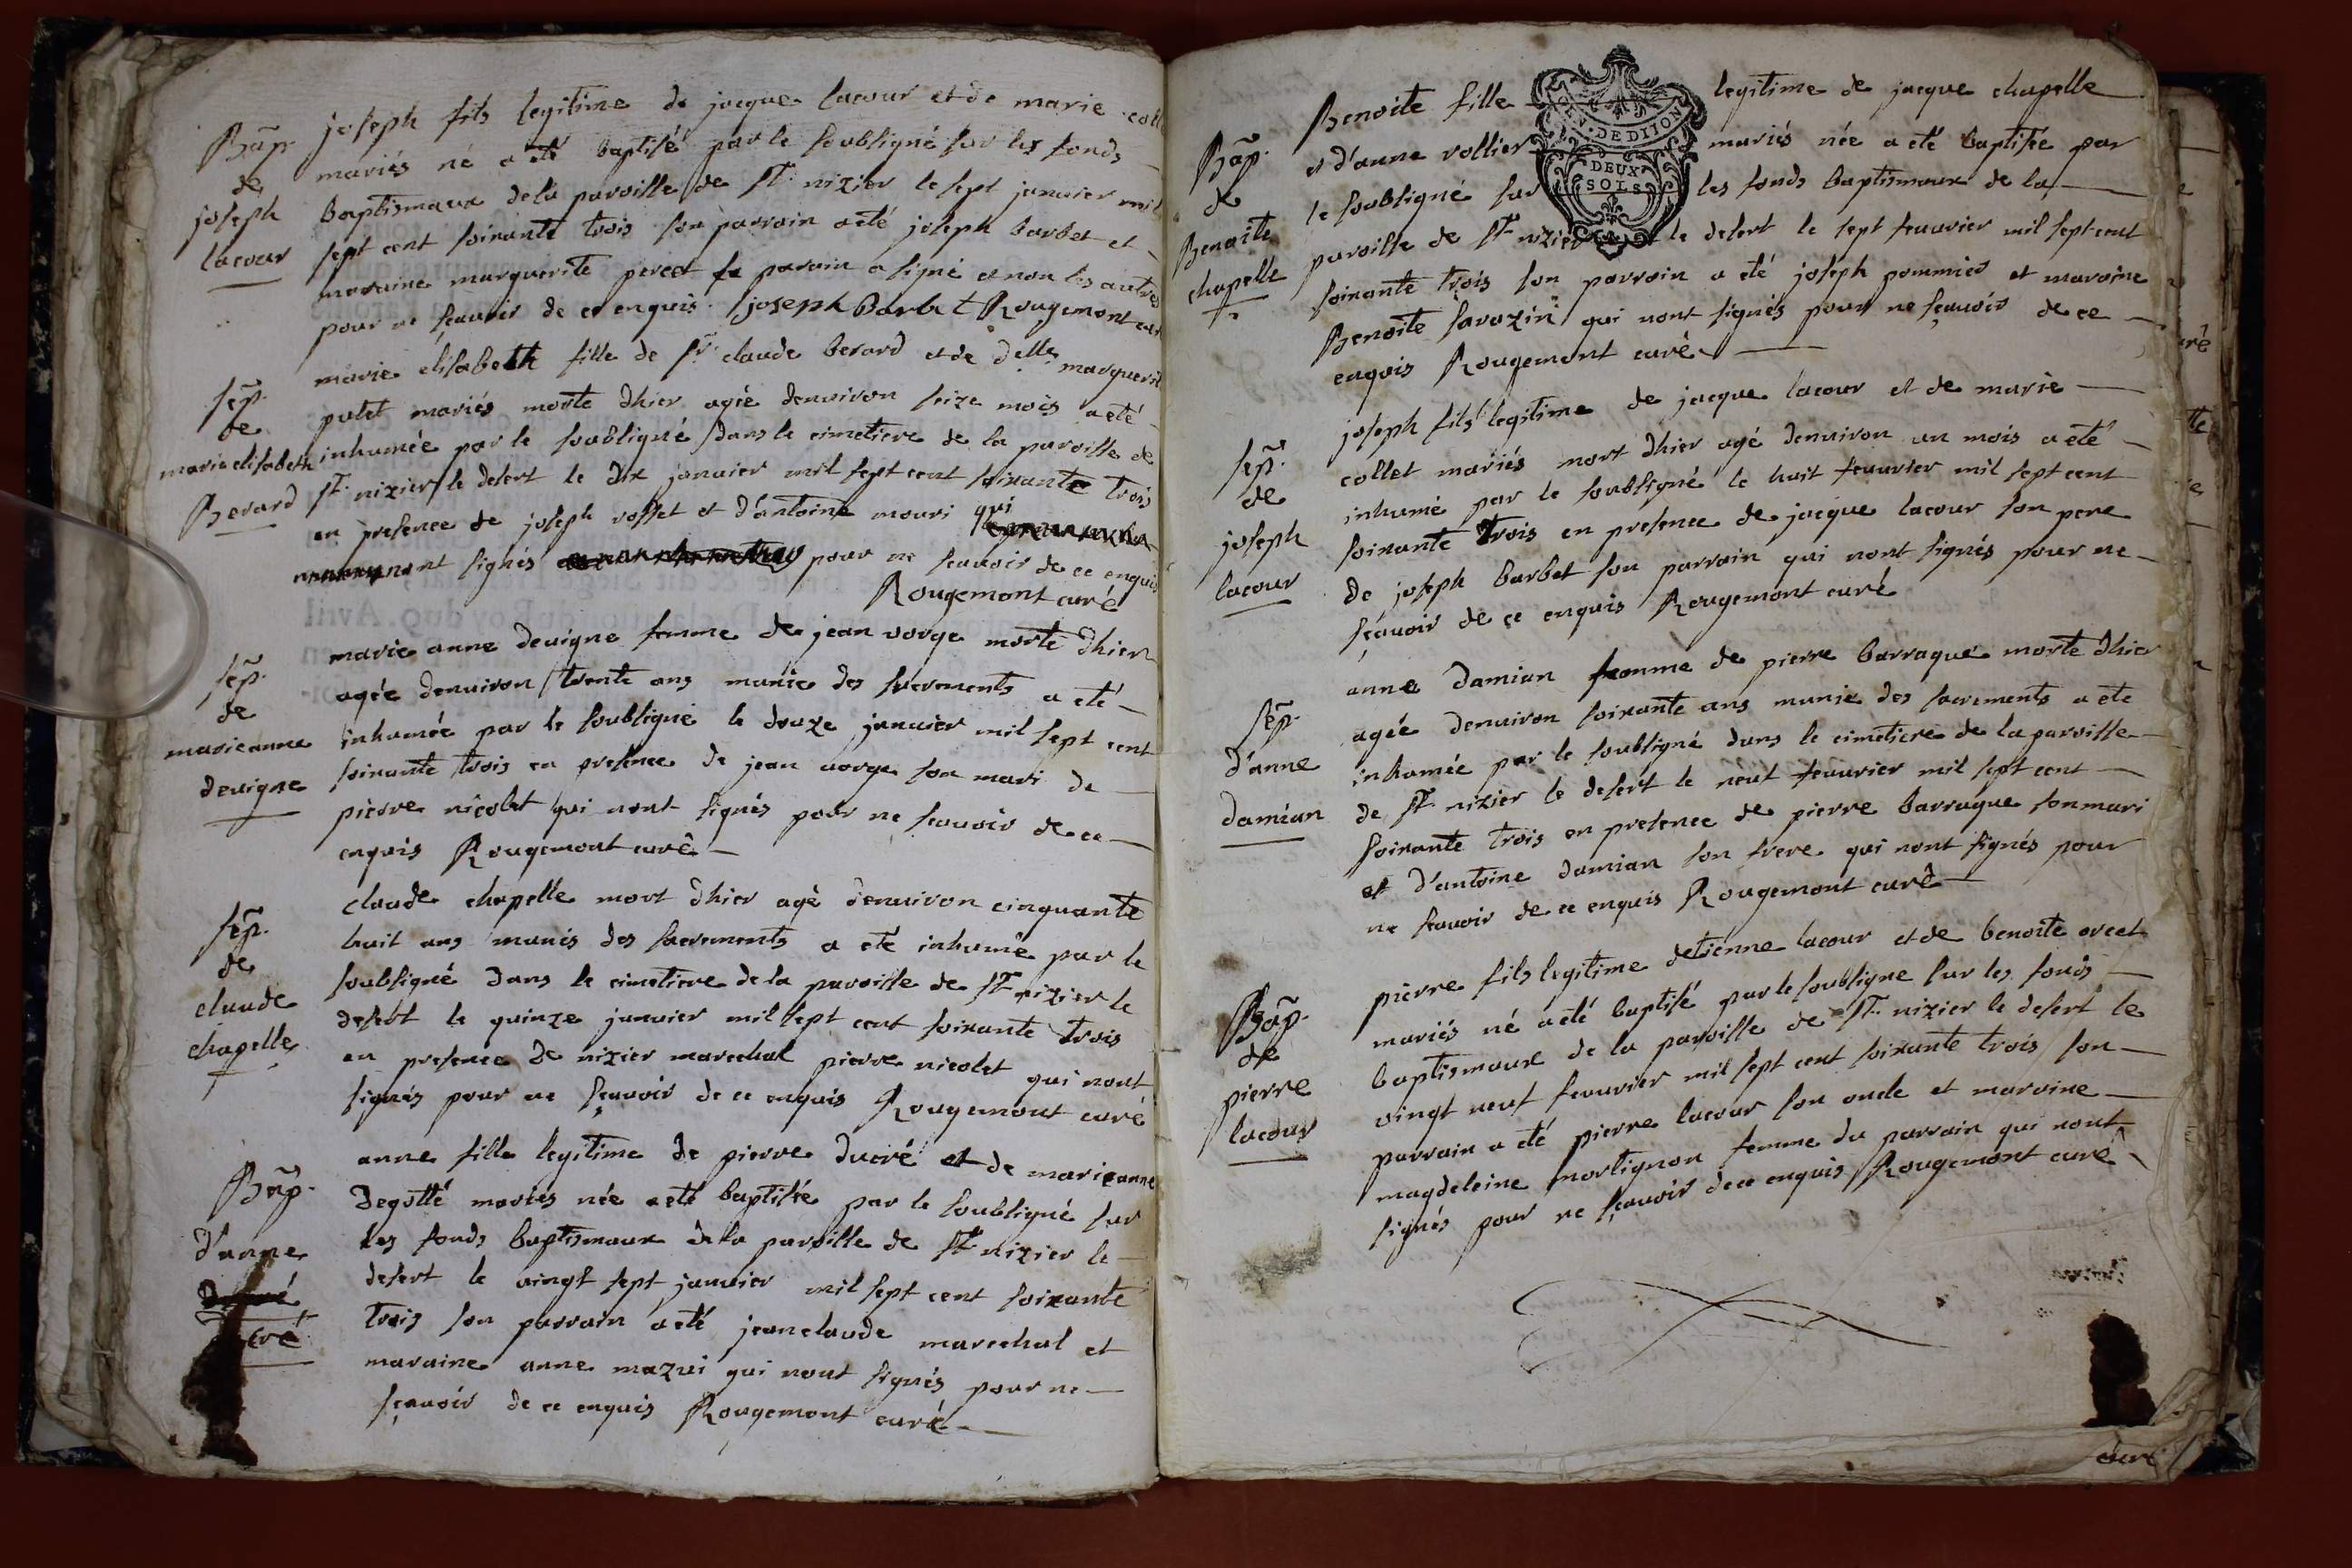 Bap.
de
joseph
lacour
joseph fils legitime de jacque lacour et de marie coll
mariés né a été baptisé par le soubsigné sur les fonds
baptismaux de la paroisse de St. nizier le sept janvier mil
sept cent soixante trois son parrain a été joseph barbet et
maraine marguerite percet le parain a signé et non les autres
pour ne sçauoir de ce enquis. joseph Barbet Rougemont curé
sep.
de
marie elisabeth
Berard
marie elisabeth fille de Sr. claude berard et de delle marguerit
putet mariés morte dhier agée denuiron seize mois a eté
inhumée par le soubsigné dans le cimetiere de la paroisse de
St. nizier le desert le dix janvier mil sept cent soixante trois
en presence de joseph rosset et d'antoine mouri qui
nont signés pour ne sçauoir de ce enquis
Rougemont curé
sep.
de
marie anne
deuigne
marie anne deuigne femme de jean vorge morte dhier
agée denuiron trente ans munie des sacrements a eté
inhumée par le soubsigné le douze januier mil sept cent
soixante trois en presence de jean vorge son mari de
pierre nicolet qui nont signés pour ne sçauoir de ce
enquis Rougemont curé
sep.
de
claude
chapelle
claude chapelle mort dhier agé denuiron cinquante
huit ans munis des sacrements a eté inhumé par le
soubsigné dans le cimetiere de la paroisse de St nizier le
desert le quinze januier mil sept cent soixante trois
en presence de nizier marechal pierre nicolet qui nont
signés pour ne sçauoir de ce enquis Rougemont curé
Bap.
d'anne
cré
anne fille legitime de pierre ducré et de marie anne
degotté mariés née a eté baptisée par le soubsigné sur
les fonds baptismaux de la paroisse de St. nizier le
desert le vingt sept januier mil sept cent soixante
trois son parrain a été jean claude marechal et
maraine anne mazui qui nont signés pour ne
sçauoir de ce enquis Rougemont curé
GEN. DE DIJON
DEUX
SOLS
Bap.
de
Benoite
chapelle
Benoite fille legitime de jacque chapelle
et d'anne vollier mariés née a eté baptisée par
le soubsigné sur les fonds baptismaux de la
paroisse de St nizier le desert le sept feuurier mil sept cent
soixante trois son parrain a eté joseph pommier et maraine
Benoite sarazin qui nont signés pour ne sçauoir de ce
enquis Rougemont curé
sep.
de
joseph
lacour
joseph fils legitime de jacque lacour et de marie
collet mariés mort dhier agé denuiron un mois a eté
inhumé par le soubsigné le huit feuurier mil sept cent
soixante trois en presence de jacque lacour son pere
de joseph barbet son parrain qui nont signés pour ne
sçauoir de ce enquis Rougemont curé
sep.
d'anne
damian
anne damian femme de pierre barraque morte dhier
agée denuiron soixante ans munie des sacrements a ete
inhumée par le soubsigné dans le cimetiere de la paroisse
de St. nizier le desert le neuf feuurier mil sept cent
soixante trois en presence de pierre barraque son mari
et d'antoine damian son frere qui nont signés pour
ne sçauoir de ce enquis Rougemont curé
Bap.
de
pierre
lacour
pierre fils legitime detienne lacour et de benoite orcet
mariés né a eté baptisé par le soubsigne sur les fonds
baptismaux de la paroisse de St. nizier le desert le
vingt neuf feuurier mil sept cent soixante trois son
parrain a eté pierre lacour son oncle et maraine
magdeleine mortignon femme du parrain qui nont
signés pour ne sçauoir de ce enquis Rougemont curé
curé